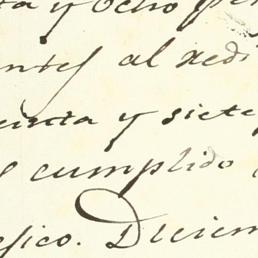 ta y ocho pe
ntes al redi
enta y siete
s cumplido
sico. Diciem